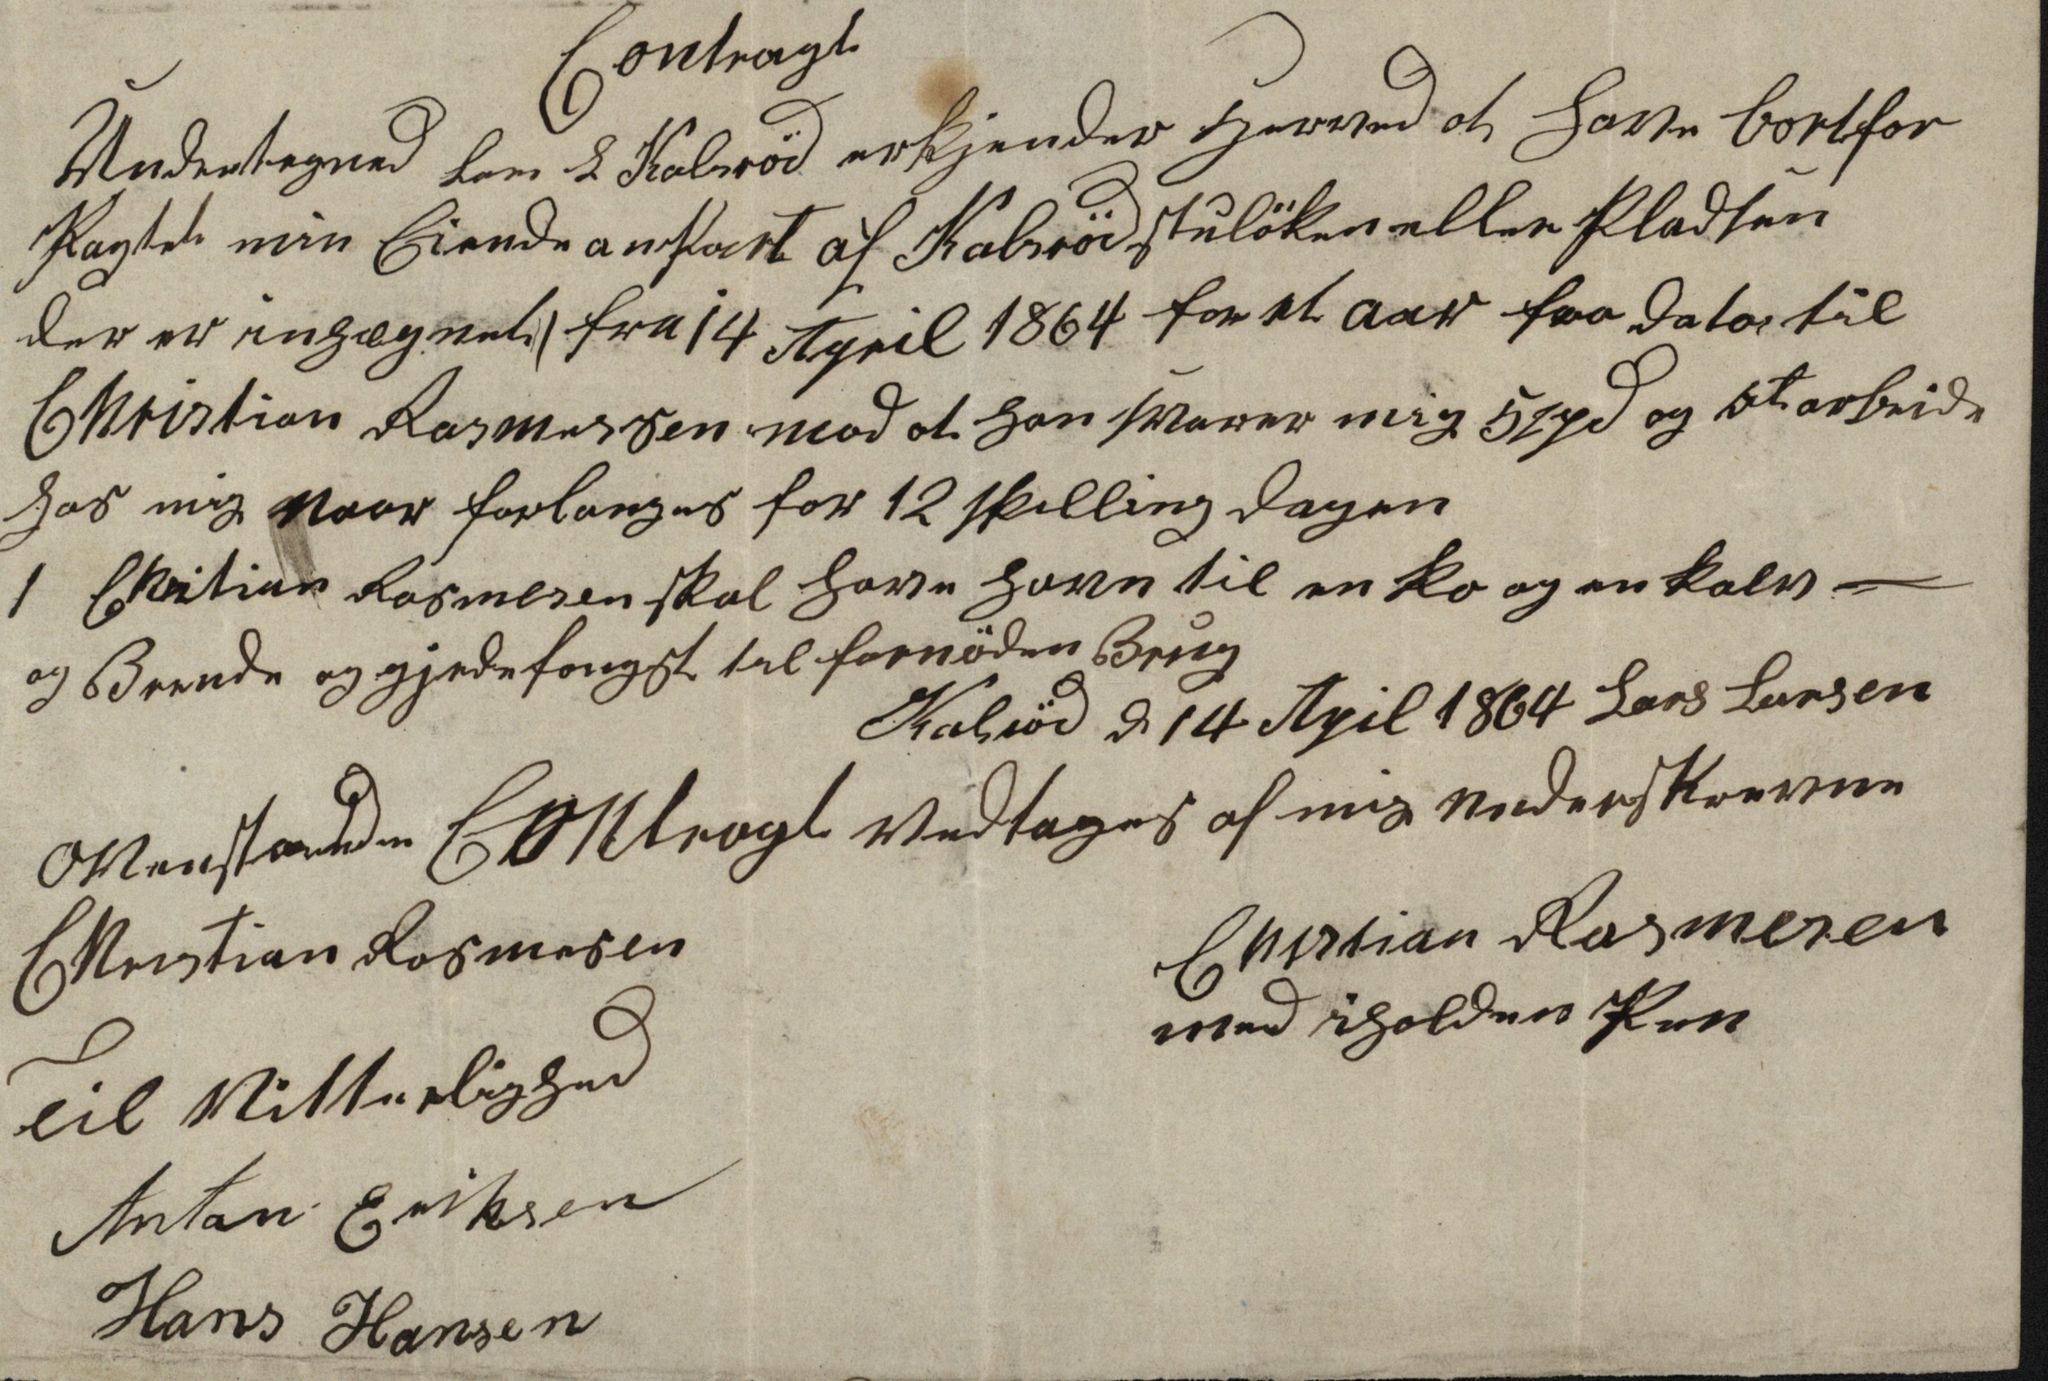 Contragt
Undertegned Lars L Kalsröd erkjender herved at have bortfor
Pagtet min Eiende anpart af Kalsröd stulöken eller Pladsen
der er inhægnet fra 14 April 1864 for et aar fra dato til
Christian Rasmussen mod at han svarer mig 5 spd og at arbeide
hos mig naar forlanges for 12 skilling dagen
1 Chritian Rasmesen skal have havn til en ko og en kalv —
og Brende og gjerdefangst til fornöden Brug
Kalsröd d 14 April 1864 Lars Larsen
Ovenstaaende Contragt vedtages af mig underskrevne
Christian Rasmesen
Christian Rasmesen
med iholden Pen
Til Vitterlighed
Antan Eriksen
Hans Hansen